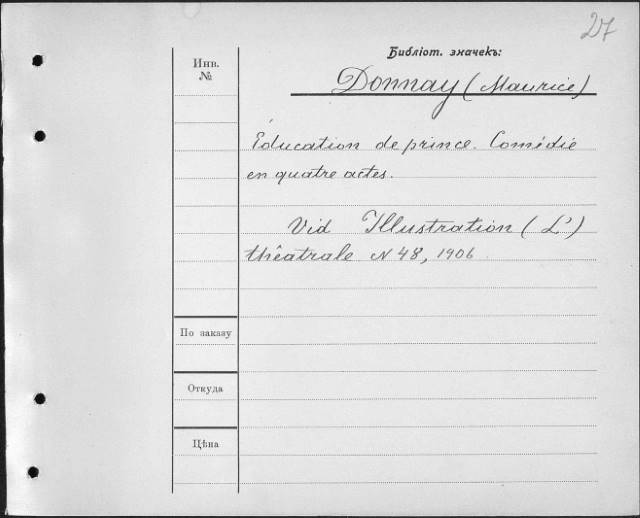 27
Библіот. значекъ:
Инв.
№
Donnay (Maurice)
Éducation de prince. Comédie
en quatre actes.
Vid Illustration (L')
théâtrale N 48, 1906
По заказу
Откуда
Цѣна